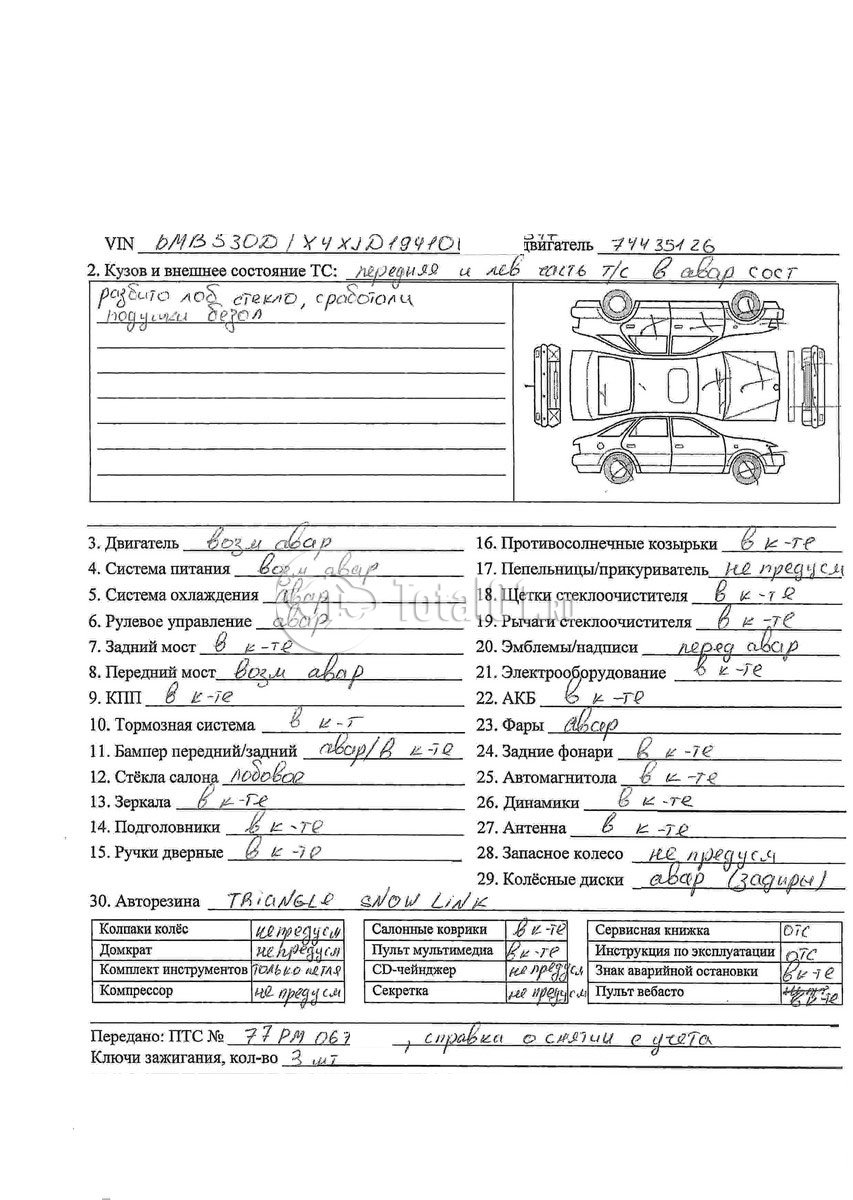 VIN БМВ 530D / X4XJD194101 двигатель 74435126
2. Кузов и внешнее состояние ТС: передняя и лев часть т/с в авар сост
разбито лоб стекло, сработали
подушки безоп
3. Двигатель возм авар
4. Система питания возм авар
5. Система охлаждения авар
6. Рулевое управление авар
7. Задний мост в к-те
8. Передний мост возм авар
9. КПП в к-те
10. Тормозная система в к-т
11. Бампер передний/задний авар/в к-те
12. Стёкла салона лобовое
13. Зеркала в к-те
14. Подголовники в к-те
15. Ручки дверные в к-те
16. Противосолнечные козырьки в к-те
17. Пепельницы/прикуриватель не предусм
18. Щётки стеклоочистителя в к-те
19. Рычаги стеклоочистителя в к-те
20. Эмблемы/надписи перед авар
21. Электрооборудование в к-те
22. АКБ в к-те
23. Фары авар
24. Задние фонари в к-те
25. Автомагнитола в к-те
26. Динамики в к-те
27. Антенна в к-те
28. Запасное колесо не предусм
29. Колёсные диски авар (задиры)
Total01.ru
30. Авторезина TRIANGLE SNOW LINK
Колпаки колёс не предусм
Домкрат не предусм
Комплект инструментов только петля
Компрессор не предусм
Салонные коврики в к-те
Пульт мультимедиа в к-те
CD-чейнджер не предусм
Секретка не предусм
Сервисная книжка ОТС
Инструкция по эксплуатации ОТС
Знак аварийной остановки в к-те
Пульт вебасто в к-те
Передано: ПТС № 77 РМ 067 , справка о снятии с учета
Ключи зажигания, кол-во 3 шт